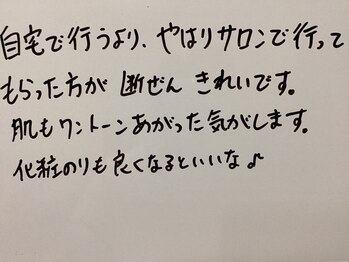 自宅で行うより、やはりサロンで行って
もらった方が 断ぜん きれいです。
肌もワントーンあがった気がします。
化粧のりも良くなるといいな♪